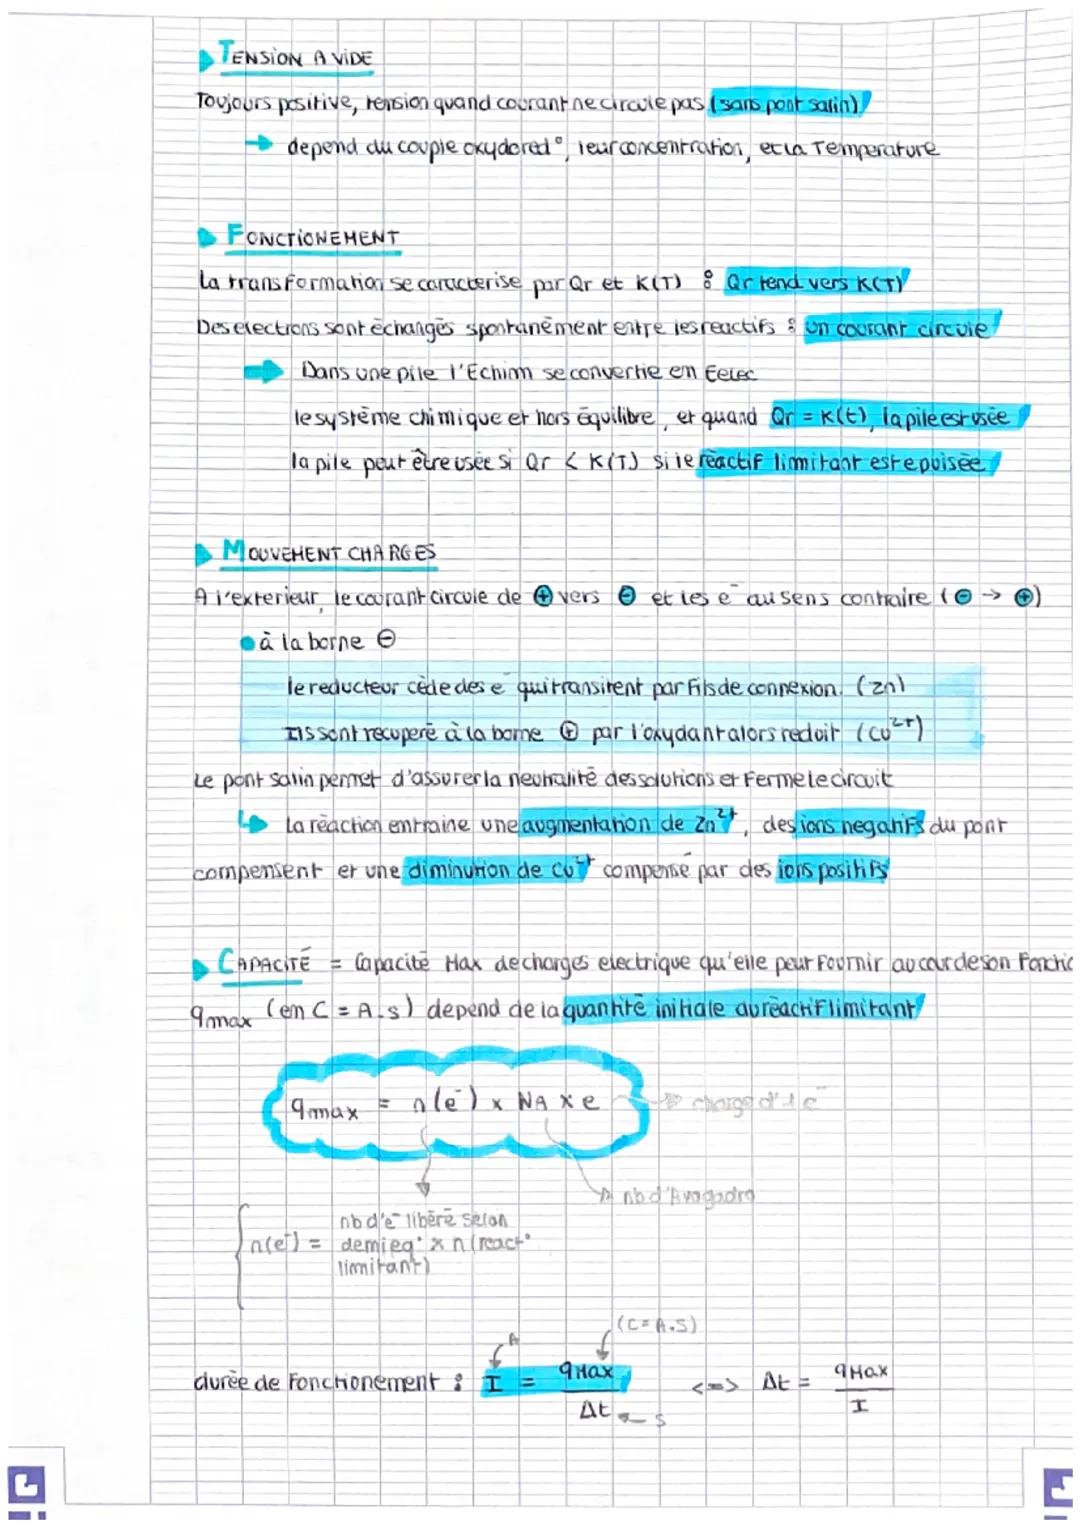 TENSION A VIDE
Toujours positive, tension quand courant ne circule pas (sans pont salin)
→ depend du couple oxydored°, leur concentration, et la Temperature
FONCTIONEMENT
La transformation se caracterise par Qr et K(T) : Qr tend vers K(T)
Des electrons sont échangés spontanément entre les reactifs : un courant circule
→ Dans une pile l'Echim se convertie en Eelec
le système chimique et hors équilibre, et quand Qr = K(t), la pile est usée
la pile peut être usée si Qr < K(T) si le réactif limitant est epuisée
MOUVEMENT CHARGES
A l'exterieur, le courant circule de ⊕ vers ⊖ et les e⁻ au sens contraire (⊖ → ⊕)
• à la borne ⊖
le reducteur cède des e⁻ qui transitent par Fils de connexion. (Zn)
Ils sont recuperé à la borne ⊕ par l'oxydant alors reduit (Cu²⁺)
Le pont salin permet d'assurer la neutralité des solutions et Ferme le circuit
↳ La réaction entraine une augmentation de Zn²⁺, des ions negatifs du pont
compensent et une diminution de Cu²⁺ compensé par des ions positifs
CAPACITÉ = Capacité Max de charges electrique qu'elle peut Fournir au cour de son Fonctio
qmax (en C = A.s) depend de la quantité initiale au réactif limitant
qmax = n(e⁻) x NA x e → charge d'1 e⁻
nb d'Avogadro
nb d'e⁻ libéré selon
n(e⁻) = demieq° x n(react°
limitant)
(C = A.S)
A
durée de Fonctionement : I = qMax / Δt ← s <=> Δt = qMax / I